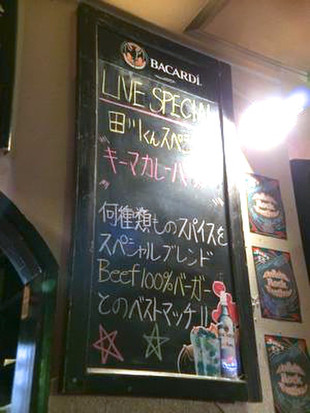 BACARDI
LIVE SPECIAL
田川くんスペ
"キーマカレーバ
何種類ものスパイスを
スペシャルブレンド
Beef100%バーガー
とのベストマッチ!!